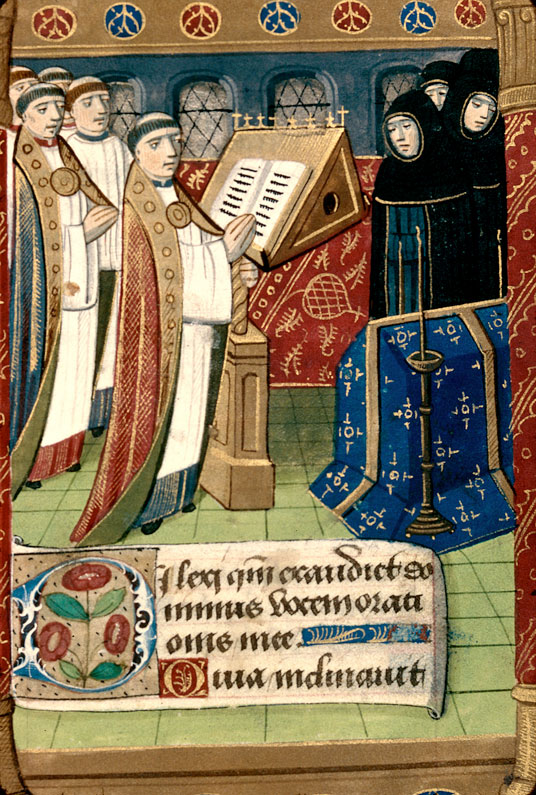 Dilexi qm̄ exaudiet do
minus vocem orati
onis mee
Quia inclinauit